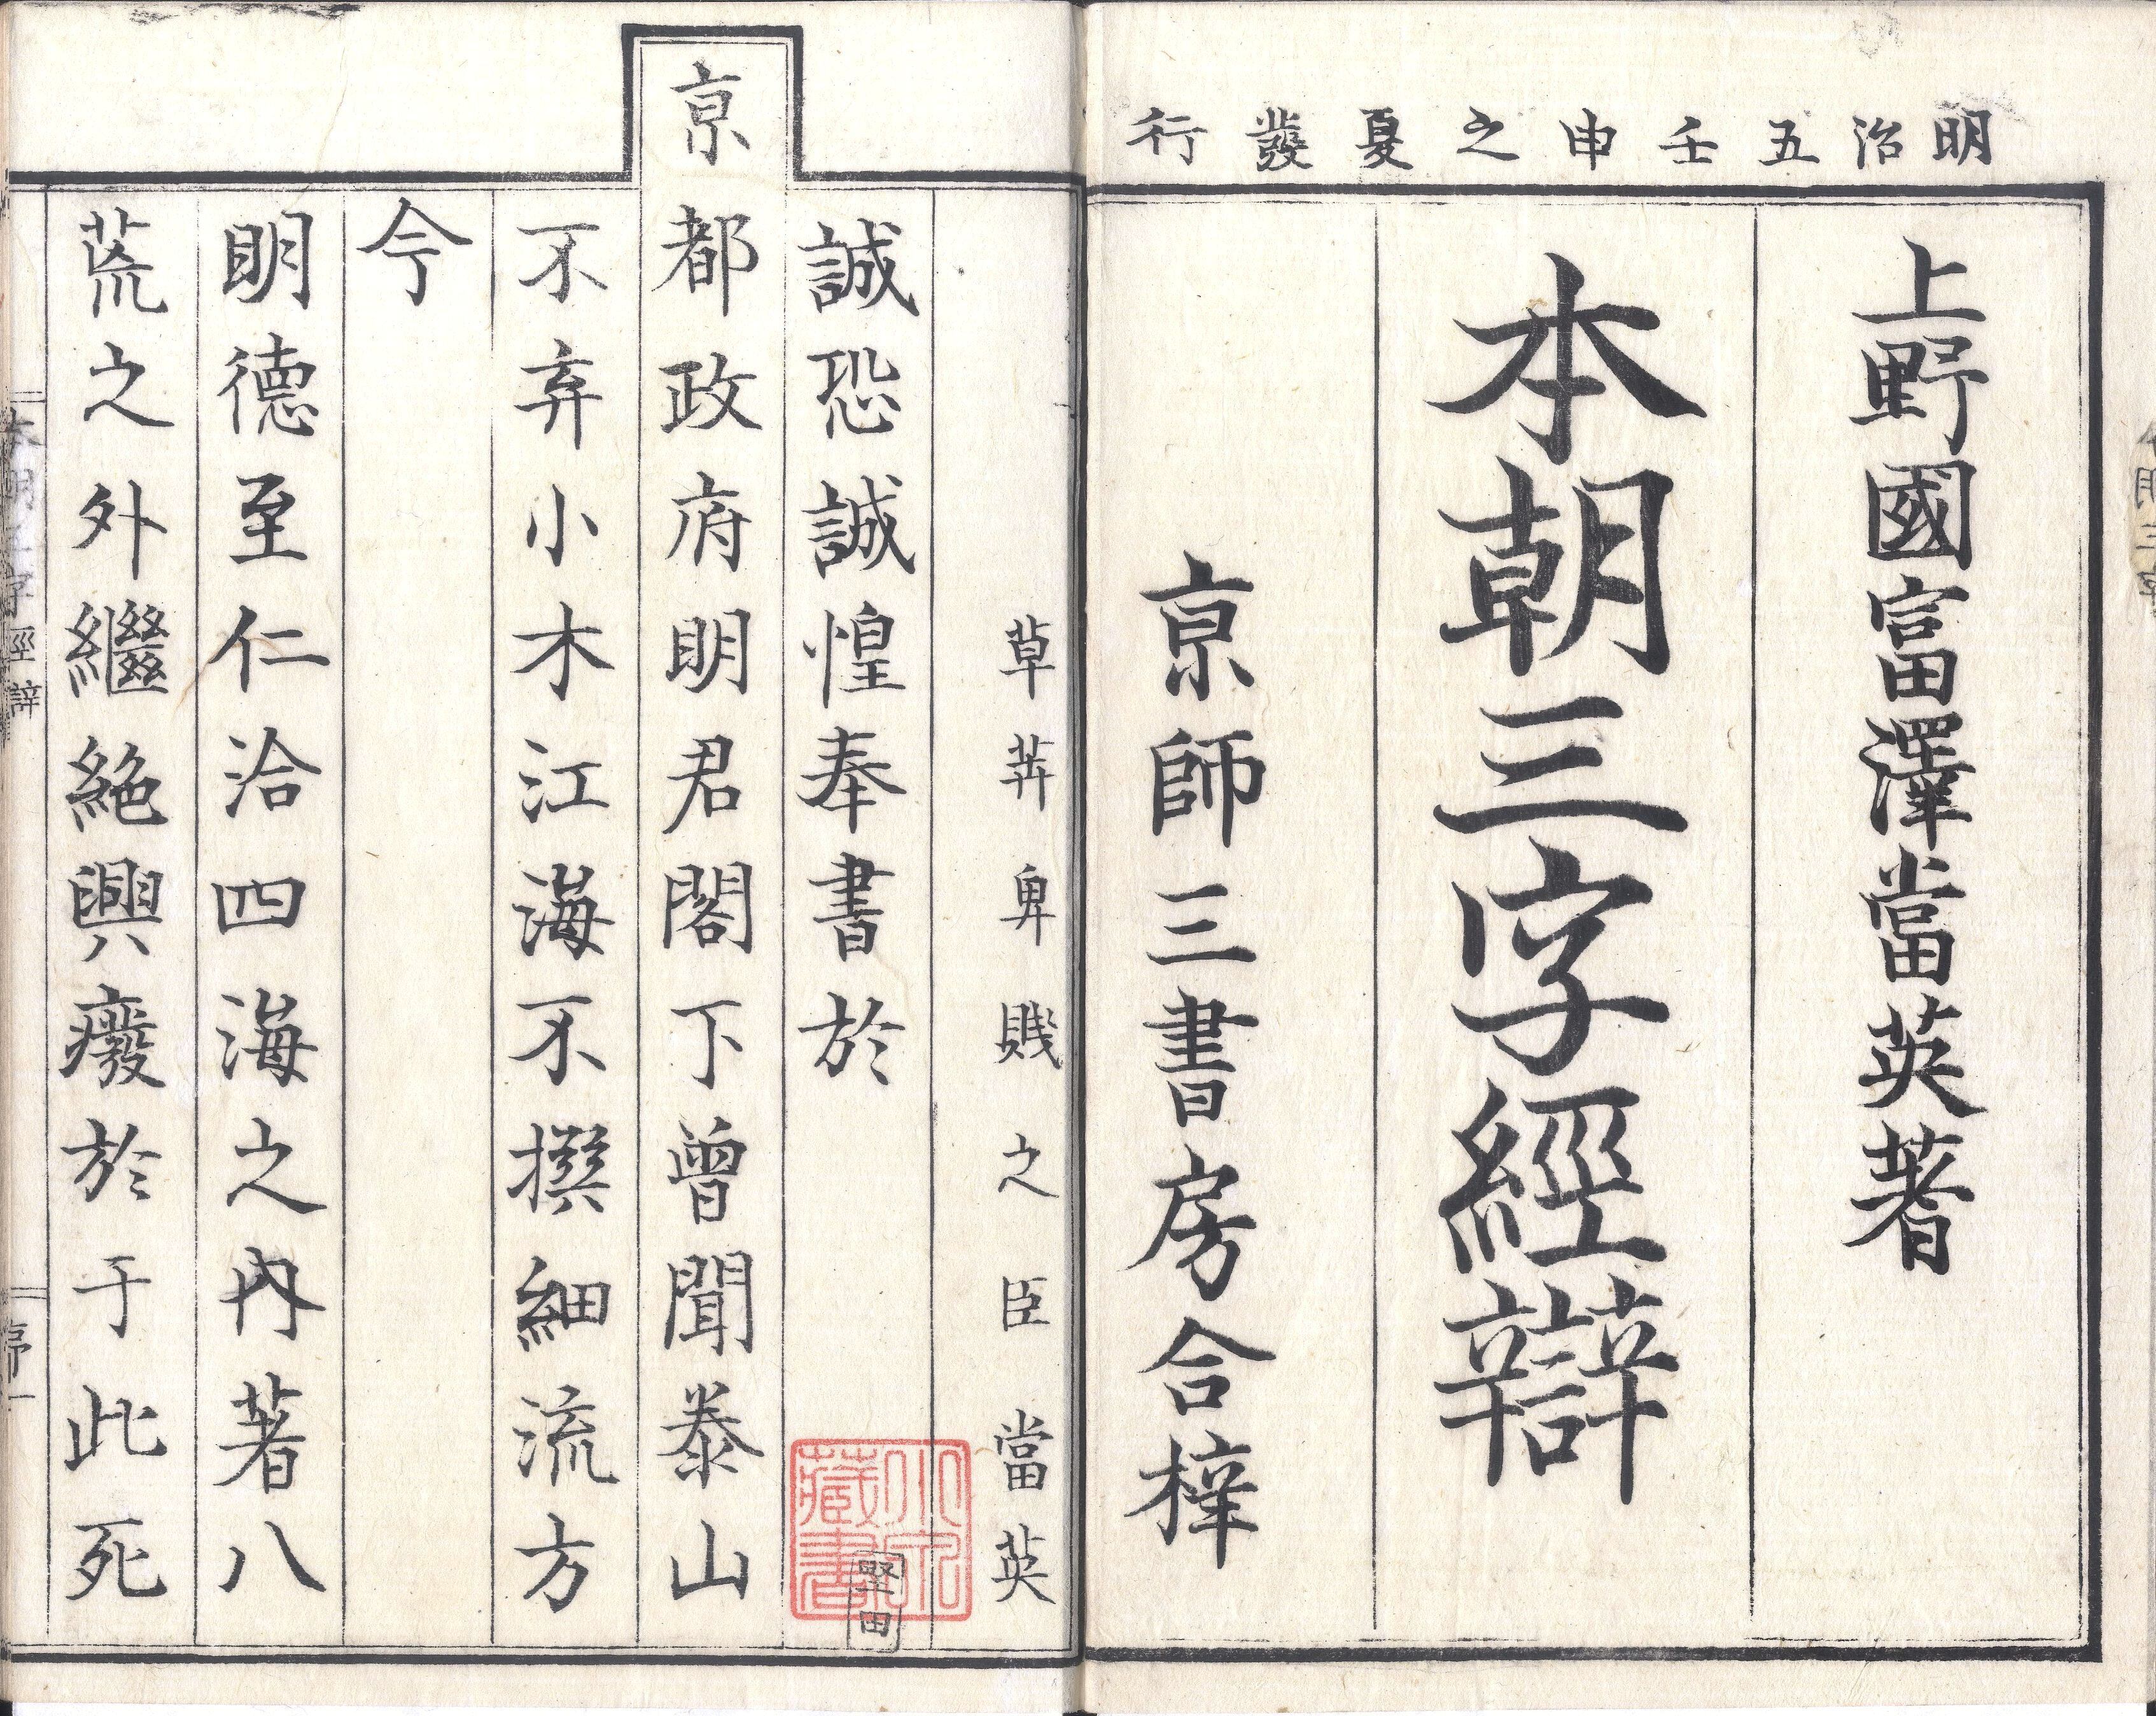 明治五壬申之夏發行
上野國富澤當英著
本朝三字經辯
亰師三書房合梓
草莽卑賤之臣當英
誠恐誠惶奉書於
亰都政府明君閣下曾聞泰山
不弃小木江海不撰細流方
今
明德至仁洽四海之内著八
荒之外繼絶興癈於于此死
藏書
堅田